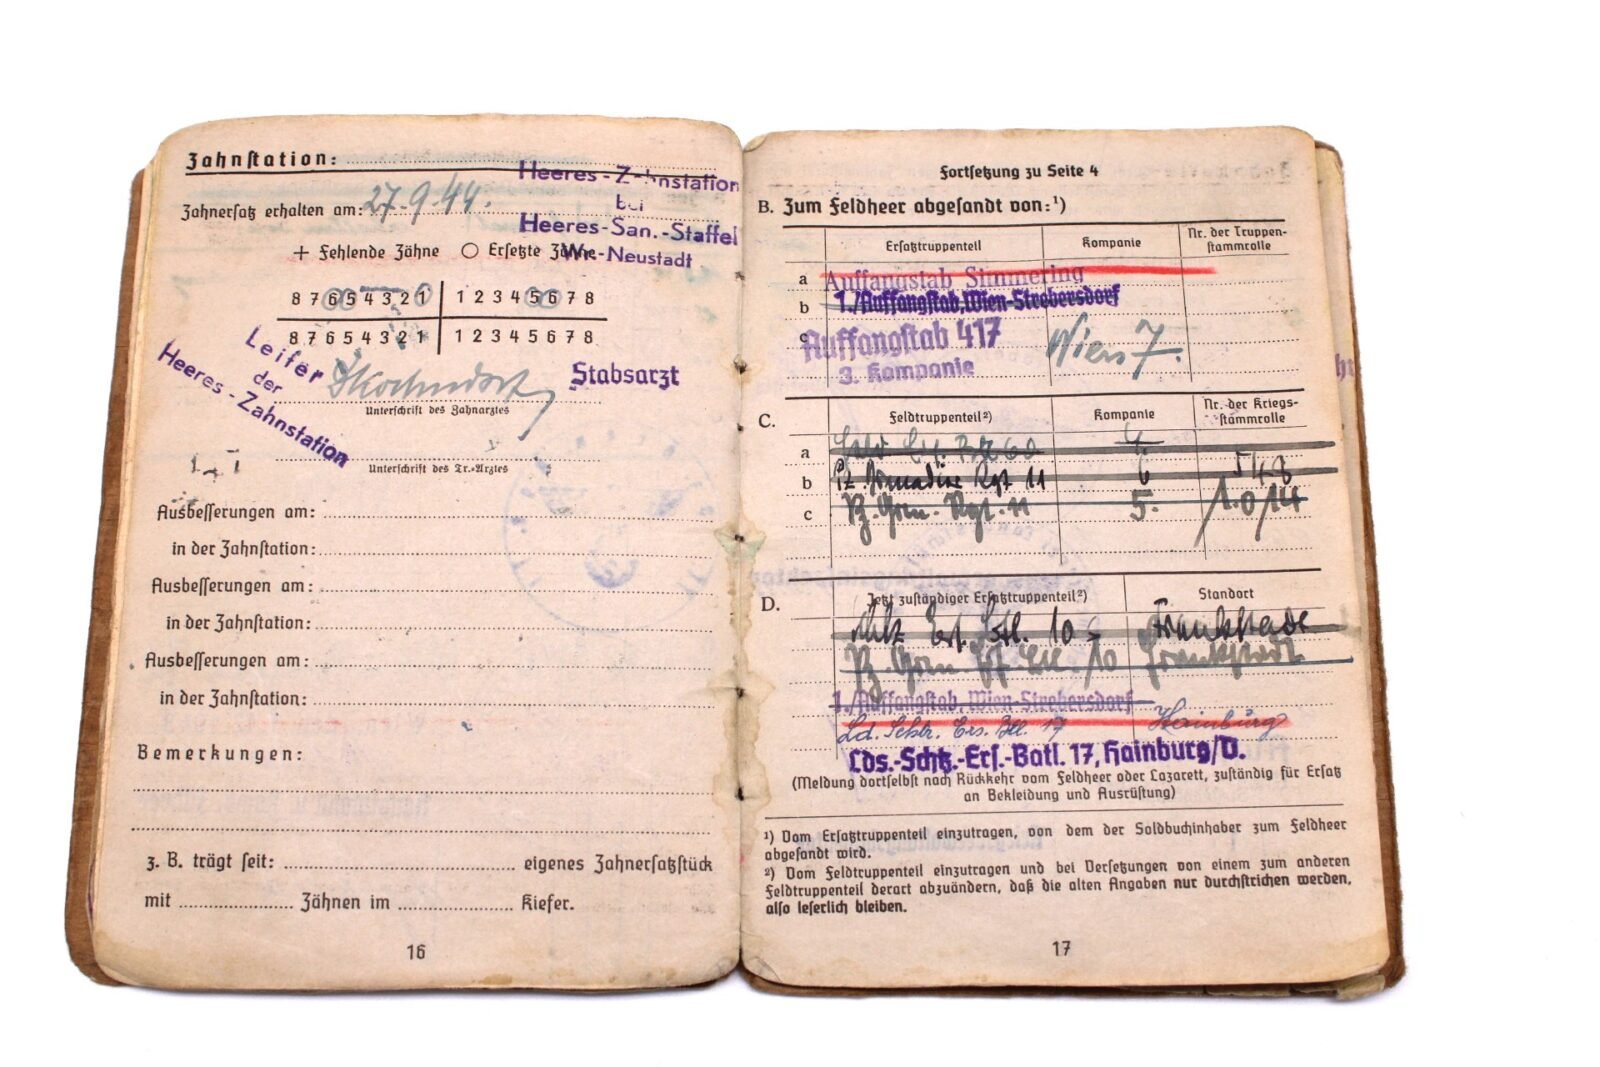 Zahnstation:
Heeres-Zahnstation
bei
Heeres-San.-Staffel
Wr.-Neustadt
Zahnersatz erhalten am: 27.9.44.
+ Fehlende Zähne ○ Ersetzte Zähne
8 7 6 5 4 3 2 1 1 2 3 4 5 6 7 8
8 7 6 5 4 3 2 1 1 2 3 4 5 6 7 8
Leiter
der
Heeres-Zahnstation
Stabsarzt
Unterschrift des Zahnarztes
Unterschrift des Tr.-Arztes
Ausbesserungen am:
in der Zahnstation:
Ausbesserungen am:
in der Zahnstation:
Ausbesserungen am:
in der Zahnstation:
Bemerkungen:
z. B. trägt seit: eigenes Zahnersatzstück
mit Zähnen im Kiefer.
16
Fortsetzung zu Seite 4
B. Zum Feldheer abgesandt von:¹)
Ersatztruppenteil Kompanie Nr. der Truppen-
stammrolle
a Auffangstab Simmering
b 1./Auffangstab, Wien-Strebersdorf
c Auffangstab 417 Wien 7.
3. Kompanie
C. Feldtruppenteil²) Kompanie Nr. der Kriegs-
stammrolle
a 60 4.
b Pz. Grenadier Rgt 11 6 548
c Pz. Gren. Rgt. 11 5.
D. Jetzt zuständiger Ersatztruppenteil²) Standort
Ers. Btl. 10
1./Auffangstab, Wien-Strebersdorf
Ld. Schtz. Ers. Btl. 17 Hainburg
Lds.-Schtz.-Ers.-Batl. 17, Hainburg/D.
(Meldung dortselbst nach Rückkehr vom Feldheer oder Lazarett, zuständig für Ersatz
an Bekleidung und Ausrüstung)
¹) Vom Ersatztruppenteil einzutragen, von dem der Soldbuchinhaber zum Feldheer
abgesandt wird.
²) Vom Feldtruppenteil einzutragen und bei Versetzungen von einem zum anderen
Feldtruppenteil derart abzuändern, daß die alten Angaben nur durchstrichen werden,
also leserlich bleiben.
17